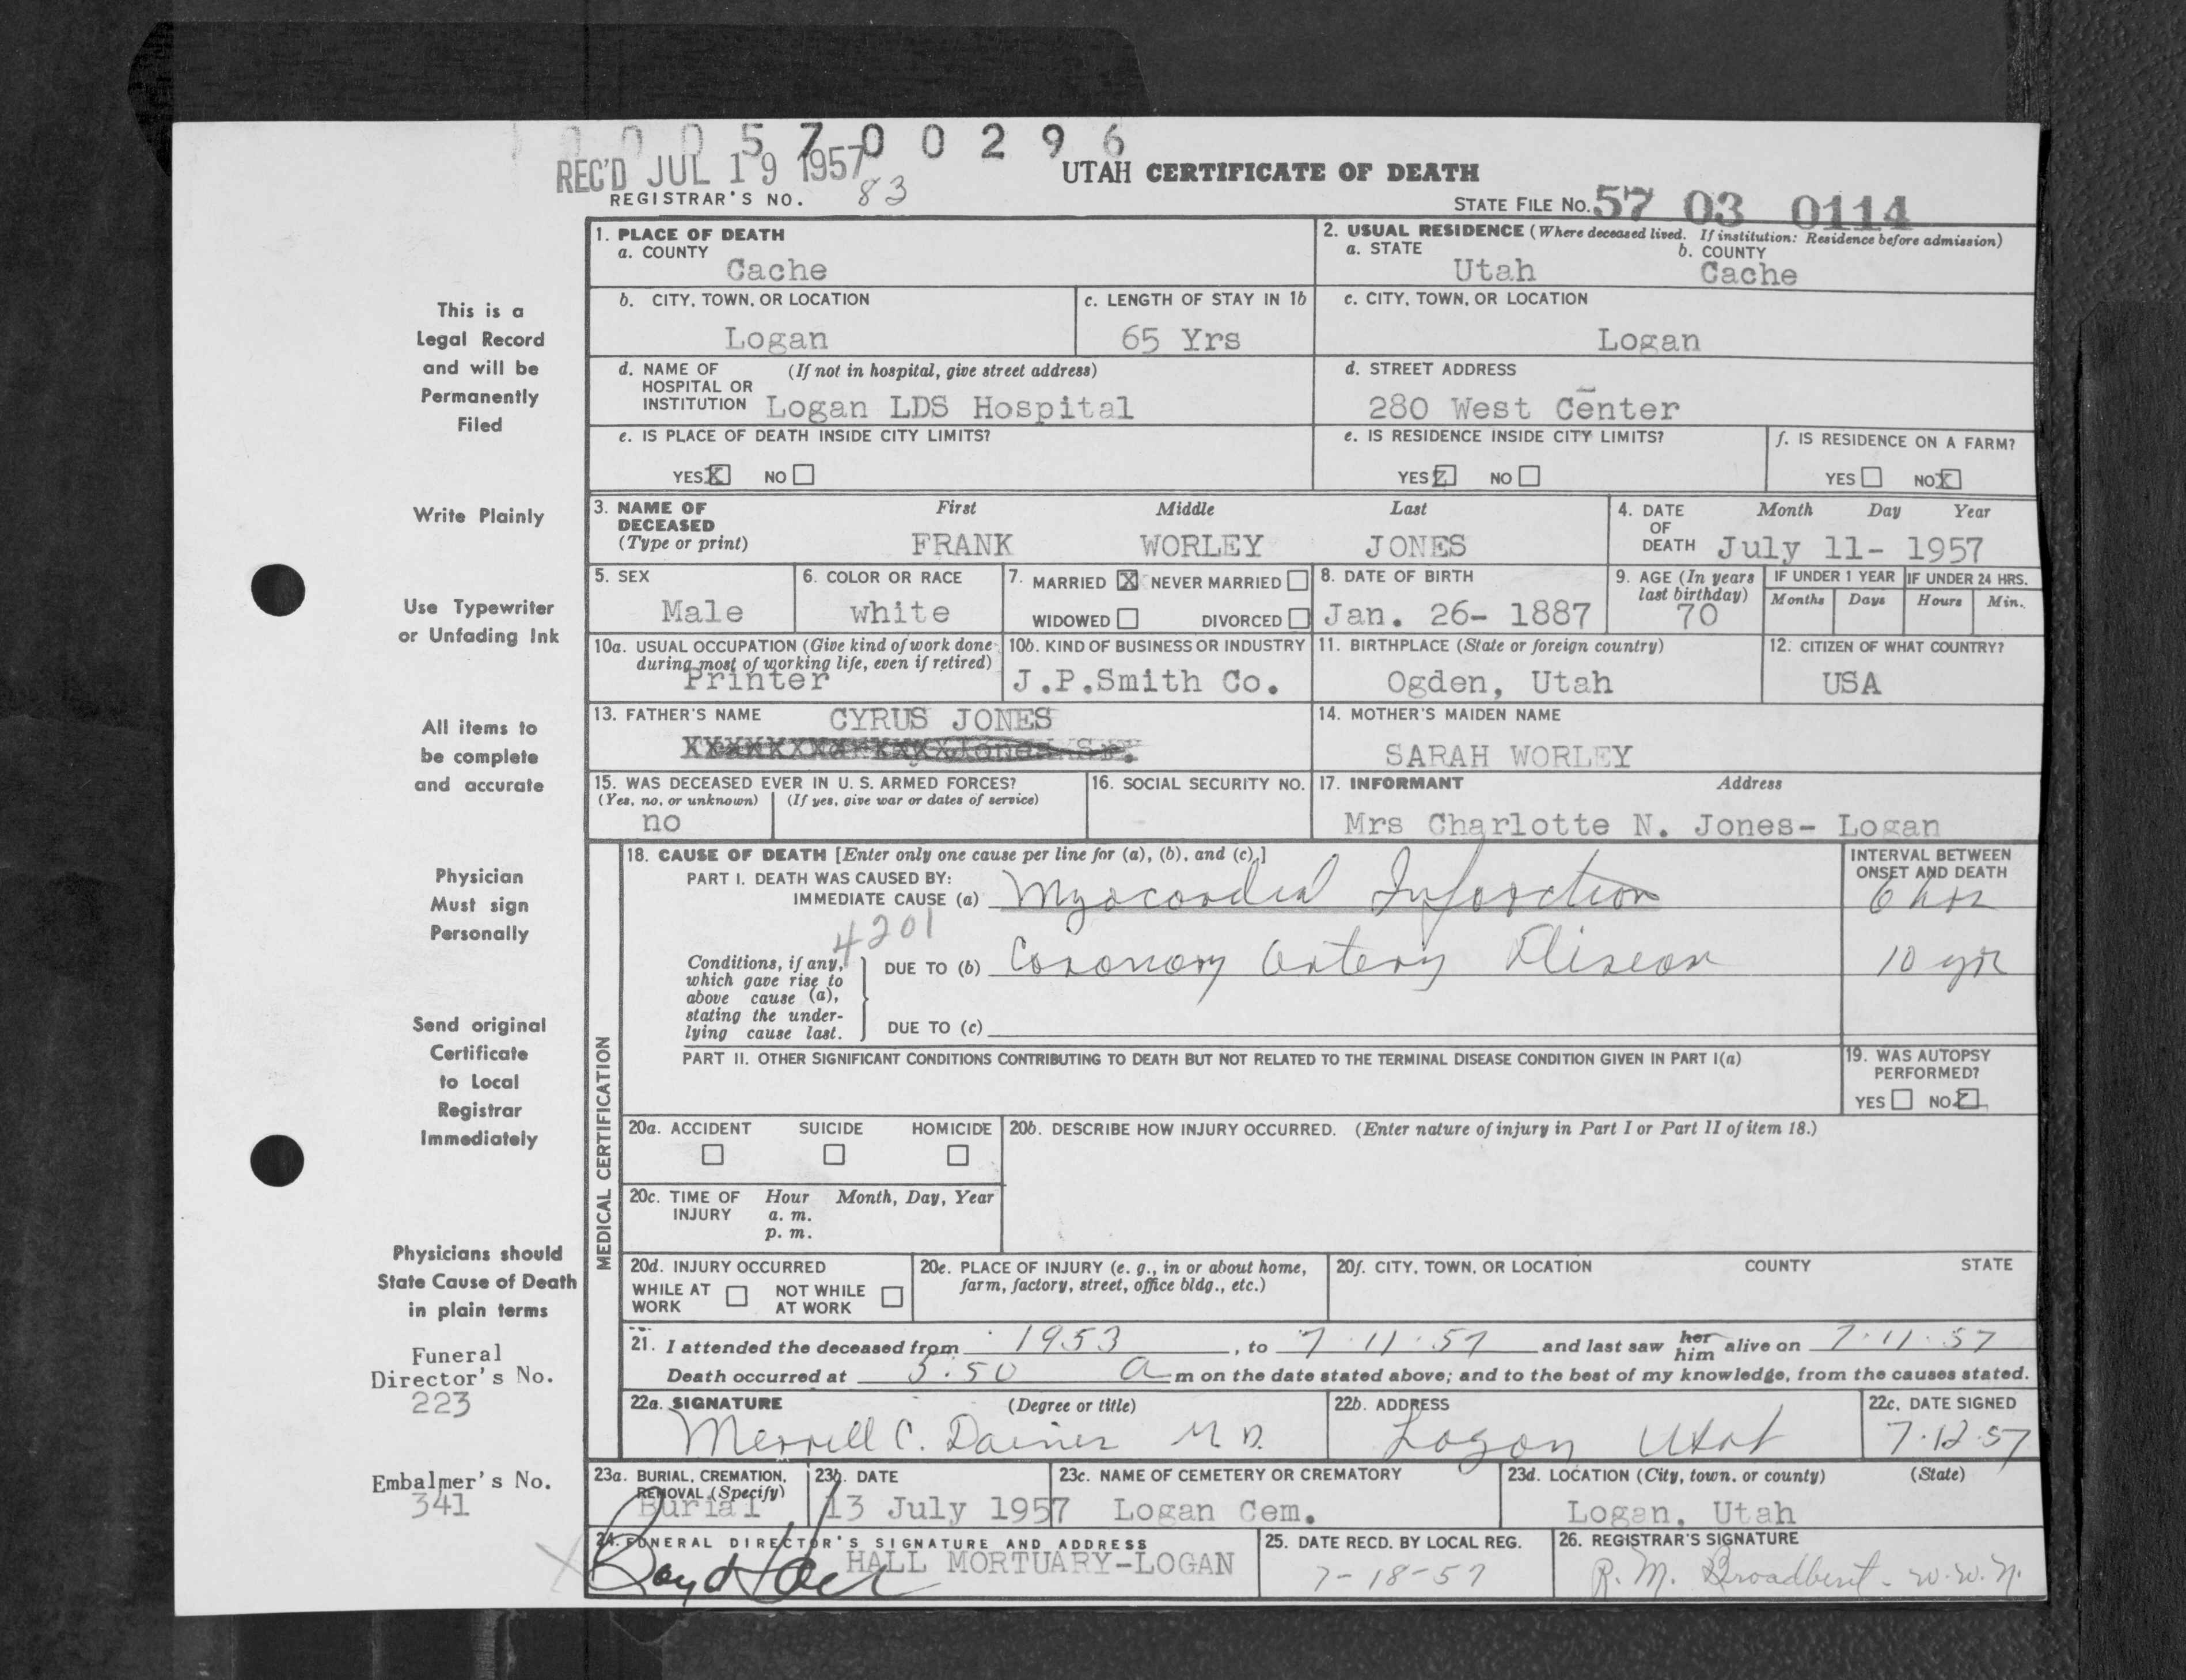 00057 00296
REC'D JUL 19 1957
UTAH CERTIFICATE OF DEATH
REGISTRAR'S NO. 83
STATE FILE No. 57 03 0114
This is a
Legal Record
and will be
Permanently
Filed
Write Plainly
Use Typewriter
or Unfading Ink
All items to
be complete
and accurate
Physician
Must sign
Personally
Send original
Certificate
to Local
Registrar
Immediately
Physicians should
State Cause of Death
in plain terms
Funeral
Director's No.
223
Embalmer's No.
341
1. PLACE OF DEATH
a. COUNTY
Cache
2. USUAL RESIDENCE (Where deceased lived. If institution: Residence before admission)
a. STATE b. COUNTY
Utah Cache
b. CITY, TOWN, OR LOCATION
Logan
c. LENGTH OF STAY IN 1b
65 Yrs
c. CITY, TOWN, OR LOCATION
Logan
d. NAME OF (If not in hospital, give street address)
HOSPITAL OR
INSTITUTION Logan LDS Hospital
d. STREET ADDRESS
280 West Center
e. IS PLACE OF DEATH INSIDE CITY LIMITS?
YES X NO
e. IS RESIDENCE INSIDE CITY LIMITS?
YES NO
f. IS RESIDENCE ON A FARM?
YES NO X
3. NAME OF First Middle Last
DECEASED
(Type or print) FRANK WORLEY JONES
4. DATE Month Day Year
OF
DEATH July 11- 1957
5. SEX
Male
6. COLOR OR RACE
white
7. MARRIED X NEVER MARRIED
WIDOWED DIVORCED
8. DATE OF BIRTH
Jan. 26- 1887
9. AGE (In years
last birthday)
70
IF UNDER 1 YEAR
Months Days
IF UNDER 24 HRS.
Hours Min.
10a. USUAL OCCUPATION (Give kind of work done
during most of working life, even if retired)
Printer
10b. KIND OF BUSINESS OR INDUSTRY
J.P.Smith Co.
11. BIRTHPLACE (State or foreign country)
Ogden, Utah
12. CITIZEN OF WHAT COUNTRY?
USA
13. FATHER'S NAME CYRUS JONES
14. MOTHER'S MAIDEN NAME
SARAH WORLEY
15. WAS DECEASED EVER IN U. S. ARMED FORCES?
(Yes, no, or unknown) (If yes, give war or dates of service)
no
16. SOCIAL SECURITY NO.
17. INFORMANT Address
Mrs Charlotte N. Jones- Logan
MEDICAL CERTIFICATION
18. CAUSE OF DEATH [Enter only one cause per line for (a), (b), and (c).]
INTERVAL BETWEEN
ONSET AND DEATH
PART I. DEATH WAS CAUSED BY:
IMMEDIATE CAUSE (a) Myocardial Infarction 6 hrs
4201
Conditions, if any,
which gave rise to
above cause (a),
stating the under-
lying cause last.
DUE TO (b) Coronary Artery Disease 10 yr
DUE TO (c)
PART II. OTHER SIGNIFICANT CONDITIONS CONTRIBUTING TO DEATH BUT NOT RELATED TO THE TERMINAL DISEASE CONDITION GIVEN IN PART I(a)
19. WAS AUTOPSY
PERFORMED?
YES NO
20a. ACCIDENT SUICIDE HOMICIDE
20b. DESCRIBE HOW INJURY OCCURRED. (Enter nature of injury in Part I or Part II of item 18.)
20c. TIME OF Hour Month, Day, Year
INJURY a. m.
p. m.
20d. INJURY OCCURRED
WHILE AT NOT WHILE
WORK AT WORK
20e. PLACE OF INJURY (e. g., in or about home,
farm, factory, street, office bldg., etc.)
20f. CITY, TOWN, OR LOCATION COUNTY STATE
21. I attended the deceased from 1953, to 7.11.57 and last saw her him alive on 7.11.57
Death occurred at 5:50 a m on the date stated above; and to the best of my knowledge, from the causes stated.
22a. SIGNATURE (Degree or title)
Merrill C. Daines M D.
22b. ADDRESS
Logan Utah
22c. DATE SIGNED
7.12.57
23a. BURIAL, CREMATION,
REMOVAL (Specify)
Burial
23b. DATE
13 July 1957
23c. NAME OF CEMETERY OR CREMATORY
Logan Cem.
23d. LOCATION (City, town, or county) (State)
Logan, Utah
24. FUNERAL DIRECTOR'S SIGNATURE AND ADDRESS
HALL MORTUARY-LOGAN
25. DATE RECD. BY LOCAL REG.
7-18-57
26. REGISTRAR'S SIGNATURE
R. M. Broadbent - w.w.n.